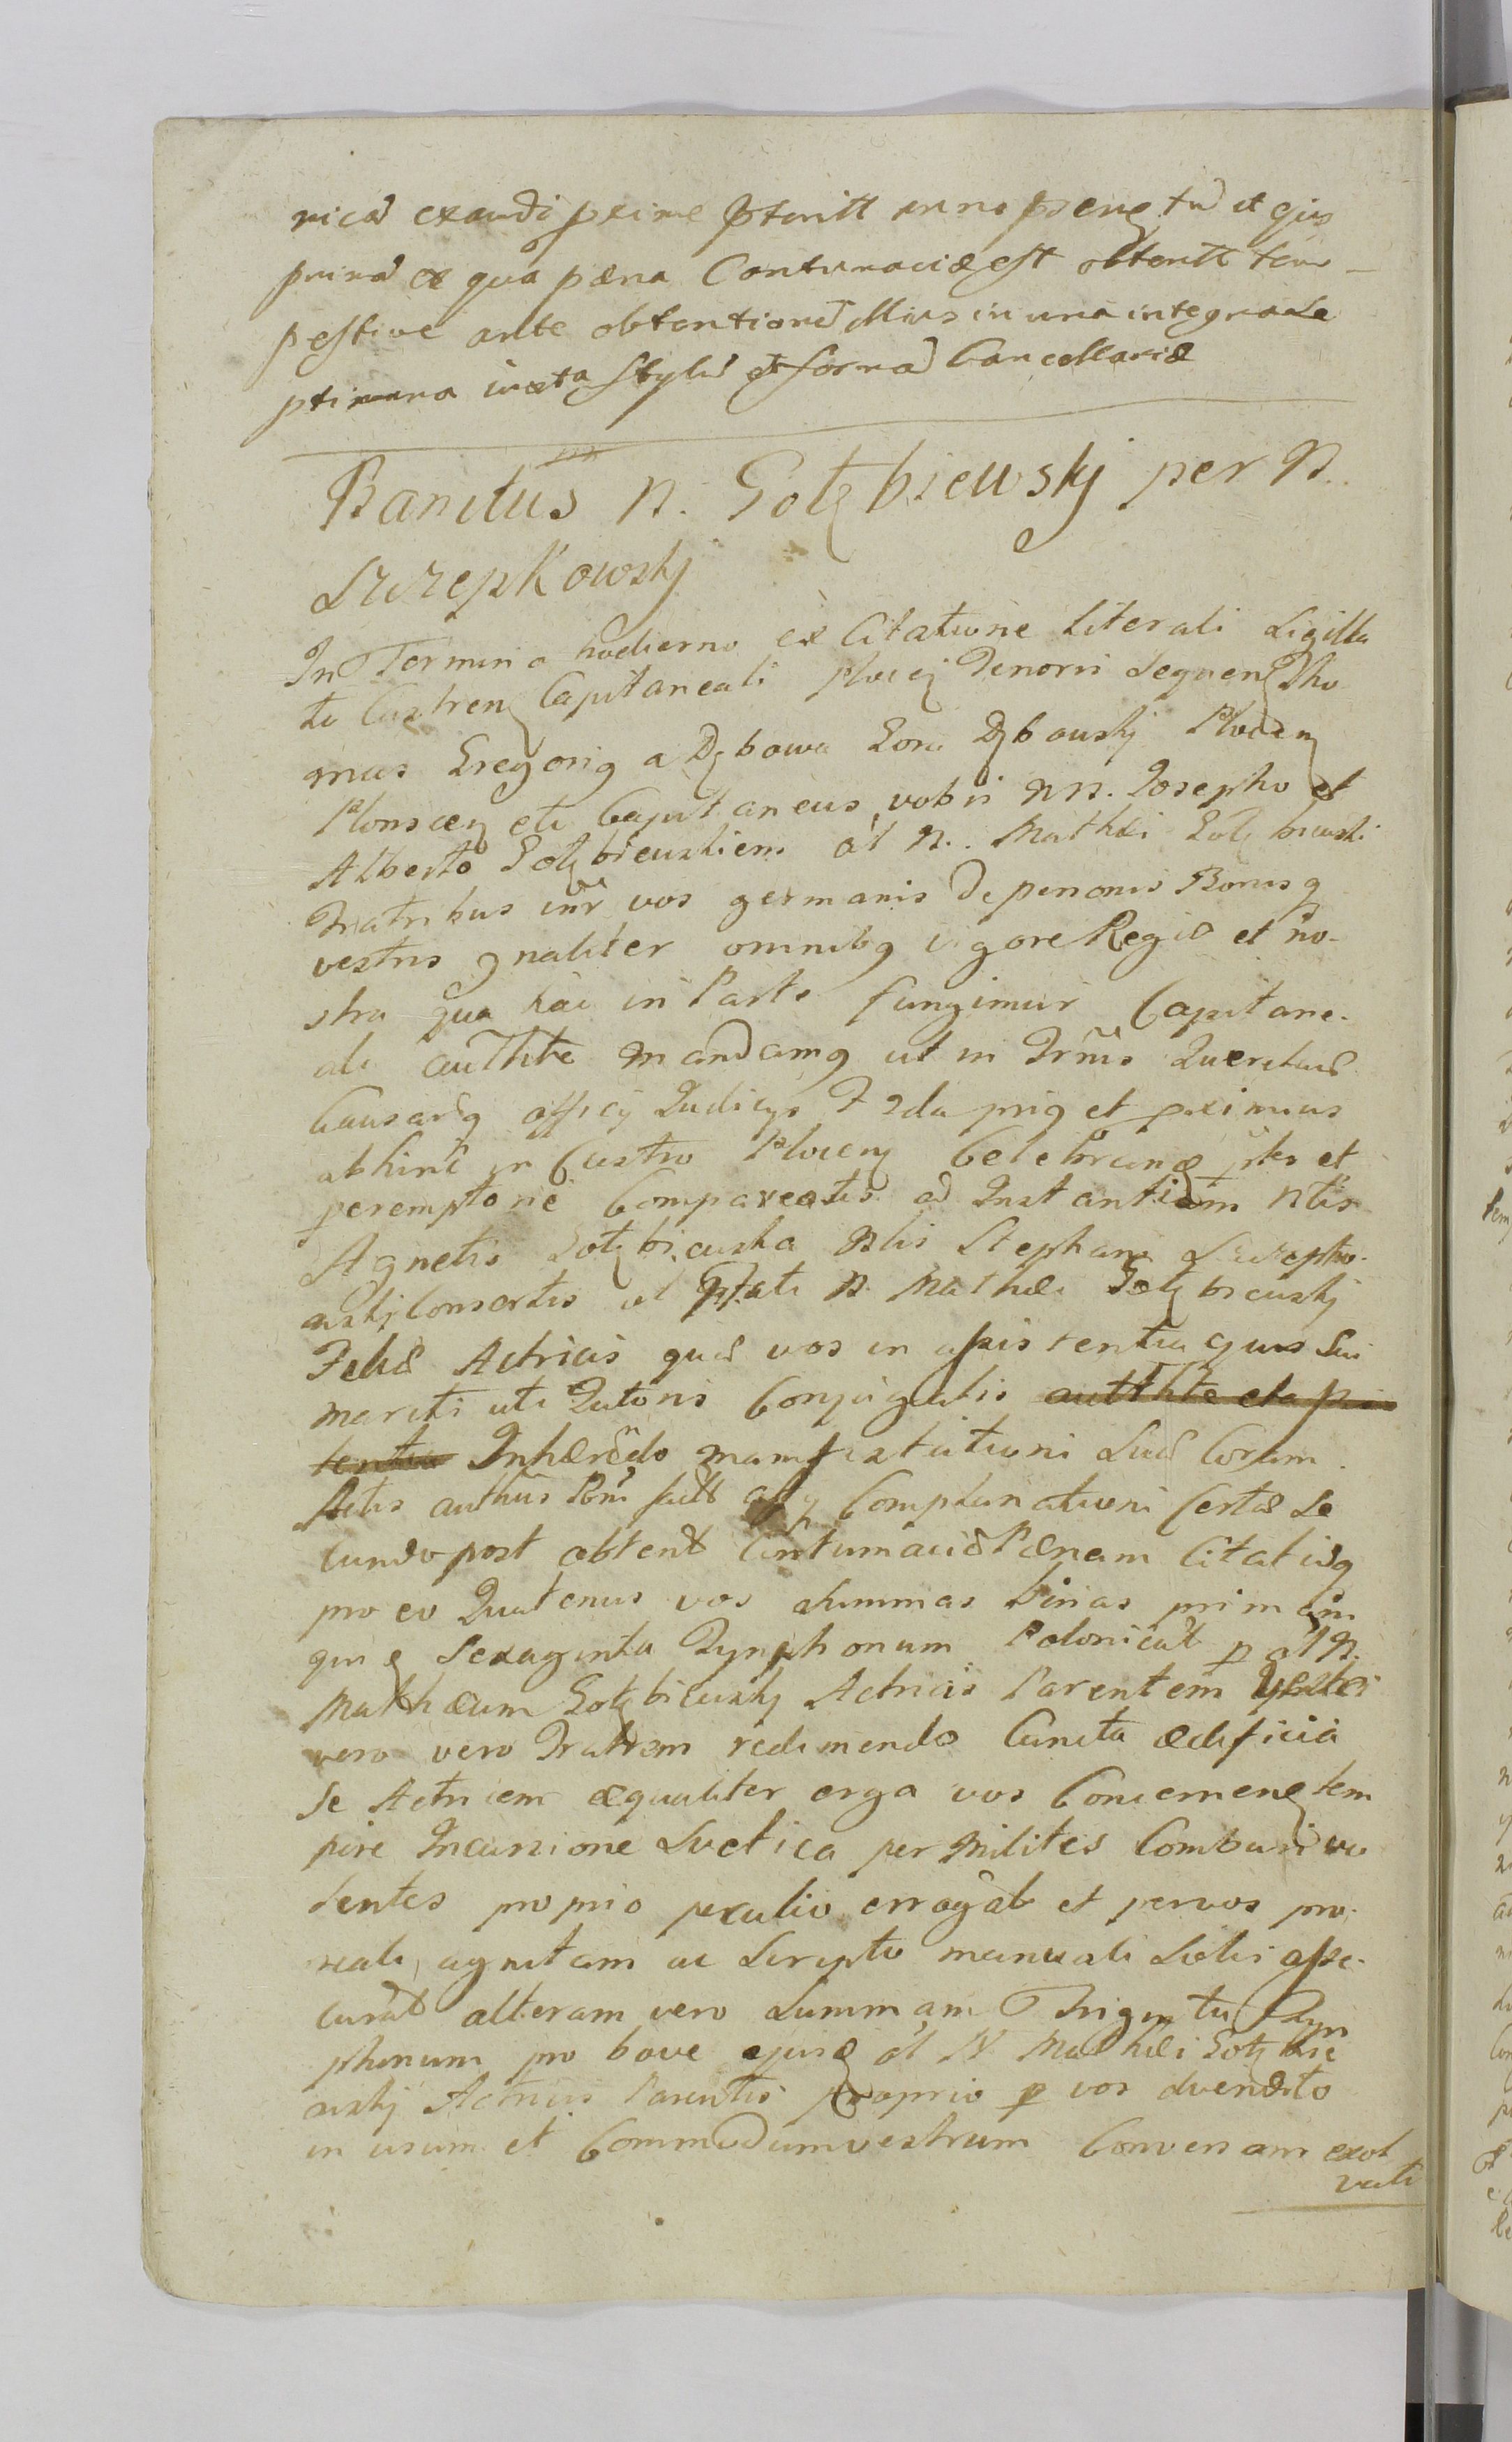 ricad exaudi pxime
prima ex qua pæna Contumaciæ est obtentt tem-
pestive ante obtentioned Ulius in una integra de
ptimma iuxta stylud et formad Cancellariæ
Banitus N. Gołębiewskj per N.
Szczepkowskj
In Termino hodierno ex Citatione Literali Sigilla
ta Castren Capitaneali Ploceñ Tenoris Sequen Tho
mas Gregorig a Dębowa Góra Dębowskj Plocen
Plonscen etc Capitaneus vobis NN. Josepho et
Alberto Gołębiewskiem ol N. Mathæi Gołębiewski
Fratribus inr vos germanis de personis Bonisq
vestris gnaliter omnibq vigore Regia et no-
stra qua hac in Parte fungimur Capitane-
ali authte mandamq ut in Trnis Querelard
Causardq officij Judicys F 2da prig et pximius
abhinc in Castro Plocen Celebrand prlr et
peremptorie Compareatis ad Instantiam Nlis
Agnetis Gołębiewska Nlis Stephani Szczepko-
wskj Consortis ol Nati N. Mathæi Gołębiewskj
Filiæ Actricis quæ vos in assistentia ejus sui
mariti uti Tutoris Conjugalis authte et assis
tentia Inhærendo manifestationi suæ Coram
Actis authcis Pntr factt Complanationi Certæ Se
cundo post obtentt Contumaciæ Pænam Citatisq
pro eo Quatenus vos Summas binas primam
quing Sexaginta Tynphonum Polonicalt p ol N.
Mathæum Gołębiewskj Actricis Parentem Vestri
vero vero Fratrem redimendo Cuncta ædificia
Se Actricem æqualiter erga vos Concernen tem
pore Incursione Svetica per Milites Comburi vo
lentes proprio peculio errogat et per vos pro-
reali, agnitam ac Scripto manuali Lotis asse-
curat alteram vero Summam Triginta Tyn
phonum pro bove ejusd ol N Mathæi Gołębie
wskj Actricis Parentis proprio p vos divendito
in usum et Commodum vestrum Conversam exol
vati